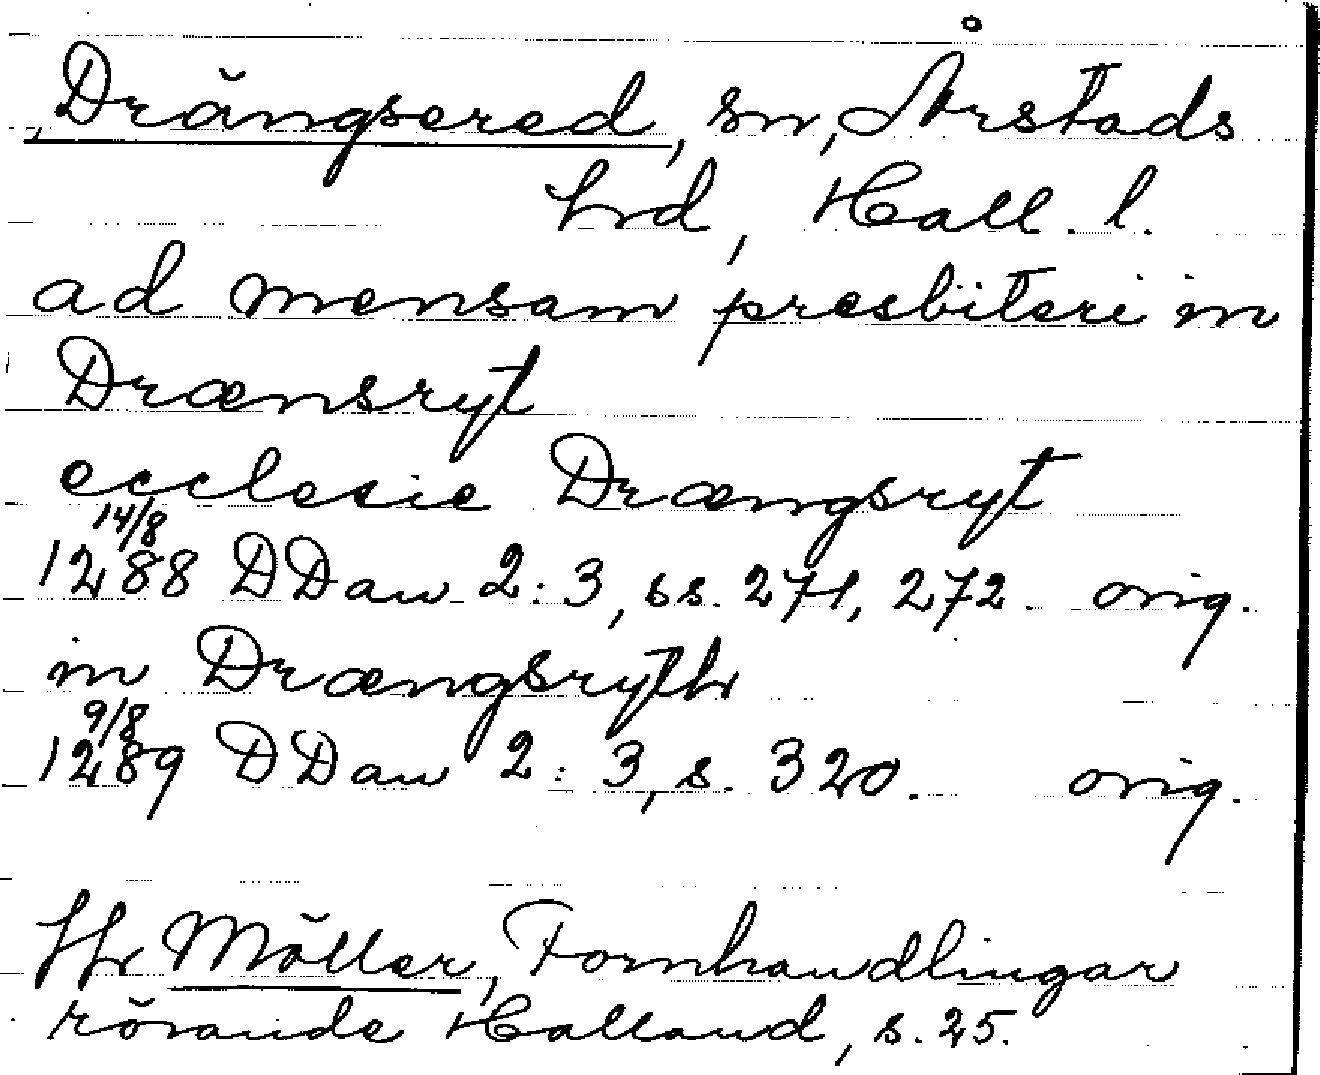 Drängsered, sn, Årstads
hrd, Hall. l.
ad mensam presbiteri in
Drænsryt
ecclesie Drængsryt
14/8
1288 DDan 2:3, ss. 271, 272. orig.
in Drængsryth
9/8
1289 DDan 2:3, s. 320. orig.
Jfr Möller, Fornhandlingar
rörande Halland, s. 25.